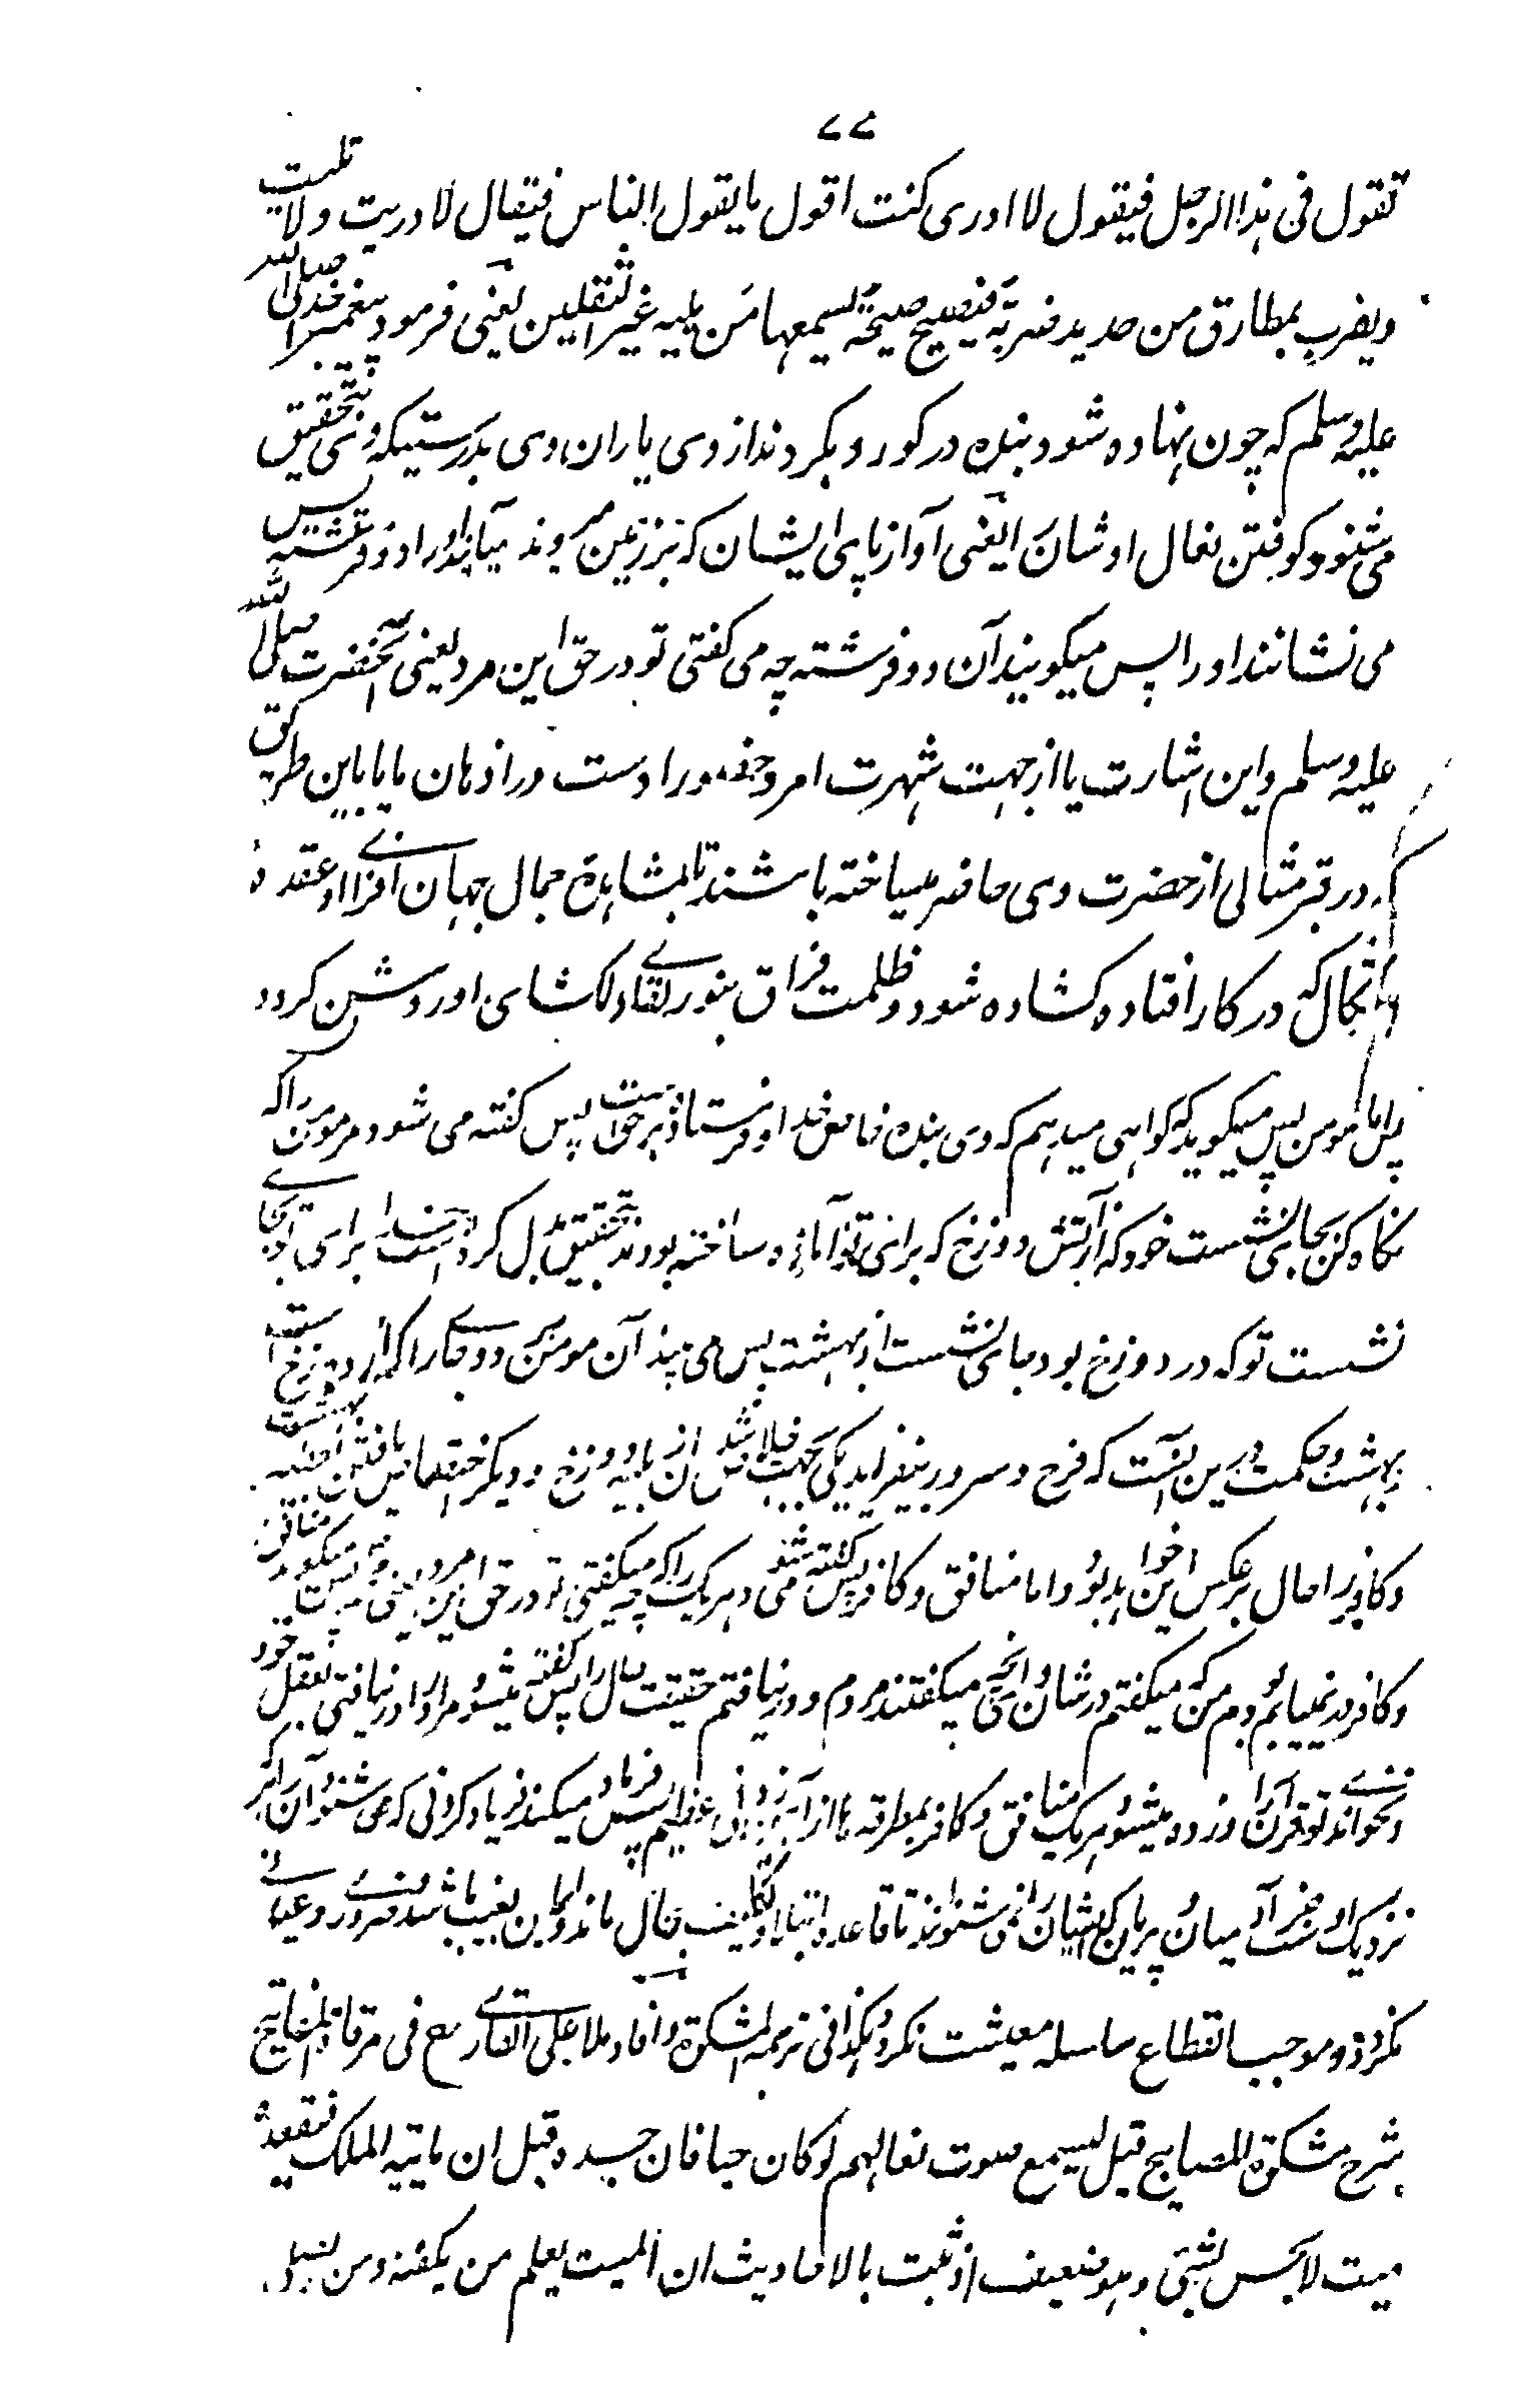 ۷۷
تقول فی ہذا الرجل فیقول لا ادری کنت اقول ما یقول الناس فیقال لا دریت ولا تلیت
ویضرب بمطارق من حدید ضربۃ فیصیح صیحۃ یسمعہا من یلیہ غیر الثقلین یعنی فرمود پیغمبر خدا صلی اللہ
علیہ وسلم کہ چون نہادہ شود بندہ در کور و بگردند از وی یاران وی بدرستیکہ وی بتحقیق
می شنود کوفتن نعال اوشان را یعنی آواز پای ایشان کہ بر زمین میروند میآیند او را دو فرشتہ پس
می نشانند او را پس میگویند آن دو فرشتہ چہ می گفتی تو در حق این مرد یعنی آنحضرت صلی اللہ
علیہ وسلم و این اشارت یا از جہت شہرت امر و حضور اوست در اذہان ما یا باین طریق
کہ در قبر مثالی از حضرت وی حاضر میساختہ باشند تا بمشاہدۂ جمال جہان افزای او عقدۂ
اشکال کہ در کار افتادہ کشادہ شود و ظلمت فراق بنور لقای دلکشای او روشن گردد
پس اما مومن پس میگوید کہ گواہی میدہم کہ وی بندہ خاص خدا و فرستادہ بر حق است پس گفتہ می شود مر مومن را کہ
نگاہ کن بجای نشست خود کہ از آتش دوزخ کہ برای تو آمادہ ساختہ بودند بتحقیق بدل کردہ است خدا برای تو بجای
نشست تو کہ در دوزخ بود جای نشست از بہشت پس می بیند آن مومن ہر دو جای را کہ از دوزخ است
بہشت و حکمت درین آنست کہ فرح و سرور بیفزاید یکی بجہت خلاص شدن از بلیہ دوزخ و دیگر اختصاص یافتن بعطیہ بہشت
و کافر را حال بر عکس این خواہد بود و اما منافق و کافر پس گفتہ می شود ہر یک را کہ چہ میگفتی تو در حق این مرد یعنی پس میگوید منافق
و کافر در نمییابم و بودم من کہ میگفتم در شان وی آنچہ میگفتند مردم و در نیافتم حقیقت حال را پس گفتہ میشود مر او را در نیافتی بعقل خود
و نخواندی تو قرآن را و زدہ میشود ہر یک منافق و کافر بمطرقہ ہا از آہن زدنی عظیم پس فریاد میکند فریاد کردنی کہ می شنود آن را ہر کہ
نزدیک اوست جز آدمیان و پریان کہ ایشان نمی شنوند تا قاعدہ ابتلا و تکلیف بحال ماند و ایمان بغیب باشد نہ ضروری و عیانی
نگردد و موجب انقطاع سلسلہ معیشت نگردد ہکذا فی ترجمۃ المشکوۃ و افاد ملا علی القاری رح فی مرقاۃ المفاتیح
شرح مشکوۃ المصابیح قیل لیسمع صوت نعالہم لو کان حیا فان جسدہ قبل ان یاتیہ الملک فیقعدہ
میت لا یحس بشیٔ و ہو ضعیف اذ ثبت بالاحادیث ان المیت یعلم من یکفنہ و من